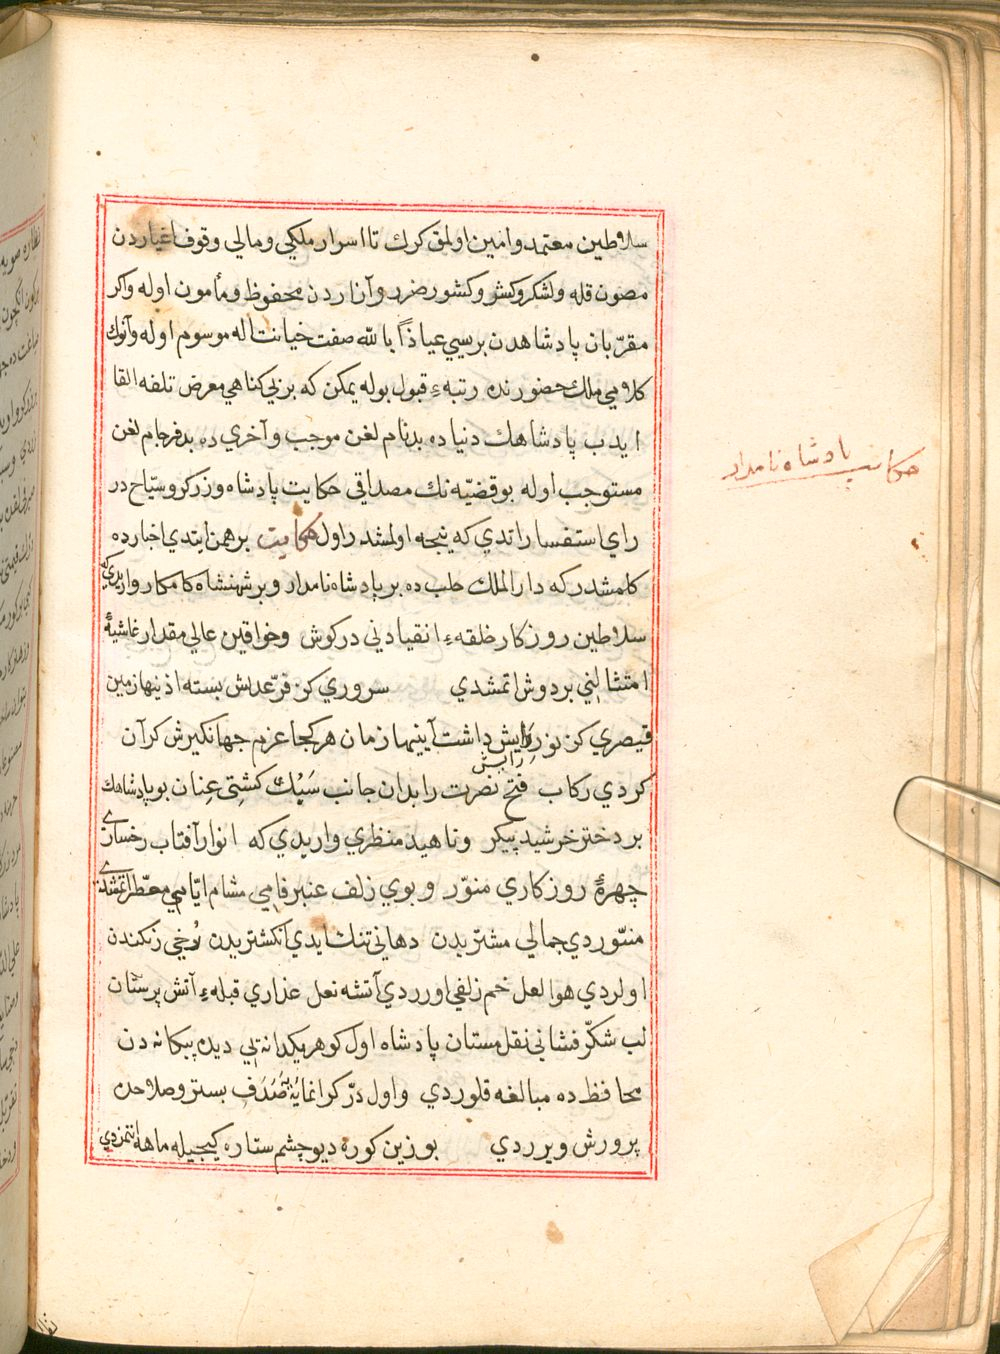 سلاطين معتمد وامين اولمق كرك تا اسرار ملكي ومالي وقوف اغياردن
مصون قله ولشكر وكشور ضرر وآزاردن محفوظ ومأمون اوله واكر
مقرّبان پادشاهدن بريسي عياذاً بالله صفت خيانت اله موسوم اوله وآنوك
كلامي ملك حضورنده رتبهء قبول بوله يمكن كه بر بي كناهي معرض تلفه القا
ايدب پادشاهك دنياده بدنام لغن موجب وآخرى ده بدفرجام لغن
مستوجب اوله بو قضيّه نك مصداقي حكايت پادشاه وزركر وسيّاح در
راي استفسار اتدي كه نيجه اولمشدر اول حكايت برهمن ايتدي اخبارده
كلمشدر كه دار الملك حلب ده بر پادشاه نامدار وبر شهنشاه كامكار واريدي كه
سلاطين روزكار حلقهء انقيادني دركوش وخواقين عالي مقدار غاشيهٔ
امتثالني بردوش اتمشدي سروري كز فرّ عدلش بسته اذينها زمين
قيصري كز نور رايش داشت آيينها زمان هر كجا عزم جهانكيرش كران
رايش
كردي ركاب فتح نصرت را بدان جانب سَبُك كشتي عِنان بو پادشاهك
بر دختر خرشيد پيكر وناهيد منظري واريدي كه انوار آفتاب رخساري
چهرهٔ روزكاري منوّر وبوي زلف عنبر فامي مشام ايّامي معطر اتمشدي
منوّردي جمالي مشتريدن دهاني تنك ايدي انكشتريدن رُخي رنكندن
اولردي هوا لعل خم زلفي اورردي آتشه نعل عذاري قبلهء آتش پرستان
لب شكّر فشاني نقل مستان پادشاه اول كوهر يكدانه يي ديدهء بيكانه دن
محافظه ده مبالغه قلوردي واول درّ كرانمايه يي صَدَف بستر وصلاحده
پرورش ويرردي بوزين كوره ديو چشم ستاره كيجيله ماهله اتمزدي
حكايت پادشاه نامدار